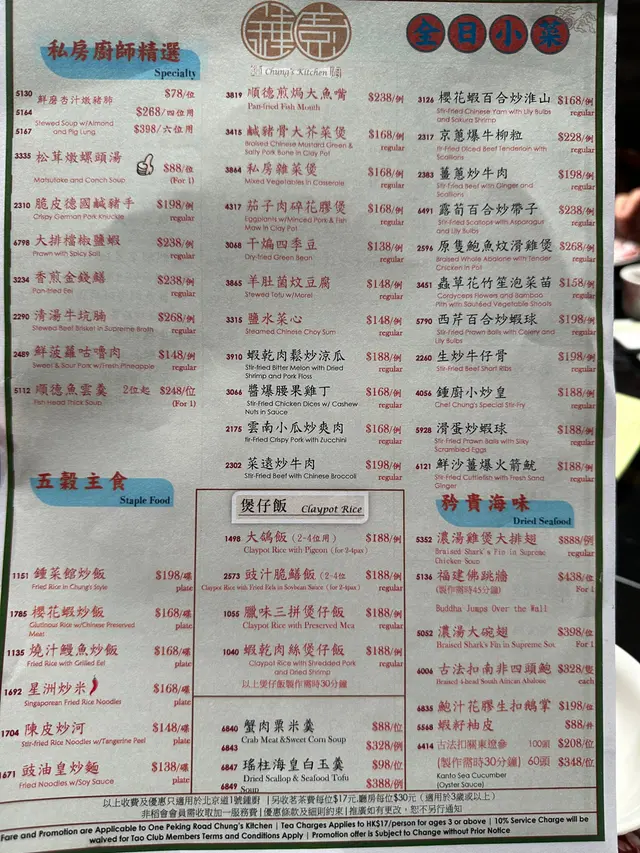 私房廚師精選
Specialty
5130 鮮磨杏汁燉豬肺 $78/位
5164 $268/四位用
Stewed Soup w/Almond and Pig Lung.
5167 $398/六位用
3335 松茸燉螺頭湯 $88/位
Matsutake and Conch Soup (For 1)
2310 脆皮德國鹹豬手 $198/例
Crispy German Pork Knuckle regular
6798 大排檔椒鹽蝦 $238/例
Prawn with Spicy Salt regular
3234 香煎金錢鱔 $238/例
Pan-fried Eel regular
2290 清湯牛坑腩 $268/例
Stewed Beef Brisket in Supreme Broth regular
2489 鮮菠蘿咕嚕肉 $148/例
Sweet & Sour Pork w/Fresh Pineapple regular
5112 順德魚雲羹 2位起 $248/位
Fish Head Thick Soup (For 1)
五穀主食
Staple Food
1151 鍾菜館炒飯 $198/碟
Fried Rice in Chung's Style plate
1785 櫻花蝦炒飯 $168/碟
Glutinous Rice w/Chinese Preserved Meat plate
1135 燒汁鰻魚炒飯 $168/碟
Fried Rice with Grilled Eel plate
1692 星洲炒米 $168/碟
Singaporean Fried Rice Noodles plate
1704 陳皮炒河 $148/碟
Stir-fried Rice Noodles w/Tangerine Peel plate
1671 豉油皇炒麵 $138/碟
Fried Noodles w/Soy Sauce plate
鍾菜
Chung's Kitchen
3819 順德煎焗大魚嘴 $238/例
Pan-fried Fish Mouth
3415 鹹豬骨大芥菜煲 $168/例
Braised Chinese Mustard Green & Salty Pork Bone in Clay Pot regular
3864 私房雜菜煲 $168/例
Mixed Vegetables in Casserole regular
4317 茄子肉碎花膠煲 $168/例
Eggplants w/Minced Pork & Fish Maw in Clay Pot regular
3068 干煸四季豆 $138/例
Dry-fried Green Bean regular
3865 羊肚菌炆豆腐 $148/例
Stewed Tofu w/Morel regular
3315 鹽水菜心 $148/例
Steamed Chinese Choy Sum regular
3910 蝦乾肉鬆炒涼瓜 $188/例
Stir-fried Bitter Melon with Dried Shrimp and Pork Floss regular
3066 醬爆腰果雞丁 $168/例
Stir-Fried Chicken Dices w/ Cashew Nuts in Sauce regular
2175 雲南小瓜炒爽肉 $168/例
tir-Fried Crispy Pork with Zucchini regular
2302 菜遠炒牛肉 $198/例
Stir-Fried Beef with Chinese Broccoli regular
煲仔飯 Claypot Rice
1498 大鴿飯(2-4位用) $188/例
Claypot Rice with Pigeon (for 2-4pax) regular
2573 豉汁脆鱔飯(2-4位 $188/例
Claypot Rice with Fried Eels in Soybean Sauce (for 2-4pax) regular
1055 臘味三拼煲仔飯 $188/例
Claypot Rice with Preserved Mea regular
1040 蝦乾肉絲煲仔飯 $188/例
Claypot Rice with Shredded Pork and Dried Shrimp regular
以上煲仔飯製作需時30分鐘
6840 蟹肉粟米羹 $88/位
Crab Meat &Sweet Corn Soup
6843 $328/例
6847 瑤柱海皇白玉羹 $98/位
Dried Scallop & Seafood Tofu Soup
6849 $388/例
全日小菜
3126 櫻花蝦百合炒淮山 $168/例
Stir-fried Chinese Yam with Lily Bulbs and Sakura Shrimp regular
2317 京蔥爆牛柳粒 $228/例
tir-fried Diced Beef Tenderloin with Scallions regular
2383 薑蔥炒牛肉 $198/例
Stir Fried Beef with Ginger and Scallions regular
6491 露荀百合炒帶子 $238/例
Stir-fried Scallops with Asparagus and Lily Bulbs regular
2596 原隻鮑魚炆滑雞煲 $268/例
Braised Whole Abalone with Tender Chicken in Pot regular
3451 蟲草花竹笙泡菜苗 $158/例
Cordyceps Flowers and Bamboo Pith with Sautéed Vegetable Shoots regular
5790 西芹百合炒蝦球 $198/例
Stir-fried Prawn Balls with Celery and Lily Bulbs regular
2260 生炒牛仔骨 $198/例
Stir-fried Beef Short Ribs regular
4056 鍾廚小炒皇 $188/例
Chef Chung's Special Stir-Fry regular
5928 滑蛋炒蝦球 $188/例
Stir-fried Prawn Balls with Silky Scrambled Eggs regular
6121 鮮沙薑爆火箭魷 $188/例
Stir-fried Cuttlefish with Fresh Sand Ginger regular
矜貴海味
Dried Seafood
5352 濃湯雞煲大排翅 $888/例
Braised Shark's Fin in Supreme Chicken Soup regular
5136 福建佛跳牆 $438/位
(製作需時45分鐘) For 1
Buddha Jumps Over the Wall
5052 濃湯大碗翅 $398/位
Braised Shark's Fin in Supreme Sou For 1
6006 古法扣南非四頭鮑 $328/隻
Braised 4-head South African Abalone each
6835 鮑汁花膠生扣鵝掌 $198/位
5568 蝦籽柚皮 $88/件
6414 古法扣關東遼參 100頭 $208/位
(製作需時30分鐘) 60頭 $348/位
Kanto Sea Cucumber
(Oyster Sauce)
以上收費及優惠只適用於北京道1號鍾廚 |另收茗茶費每位$17元,廳房每位$30元(適用於3歲或以上)
非稻會會員需收取加一服務費|優惠條款及細則約束|推廣如有更改,恕不另行通知
Fare and Promotion are Applicable to One Peking Road Chung's Kitchen | Tea Charges Applies to HK$17/person for ages 3 or above | 10% Service Charge will be
waived for Tao Club Members Terms and Conditions Apply | Promotion offer is Subject to Change without Prior Notice